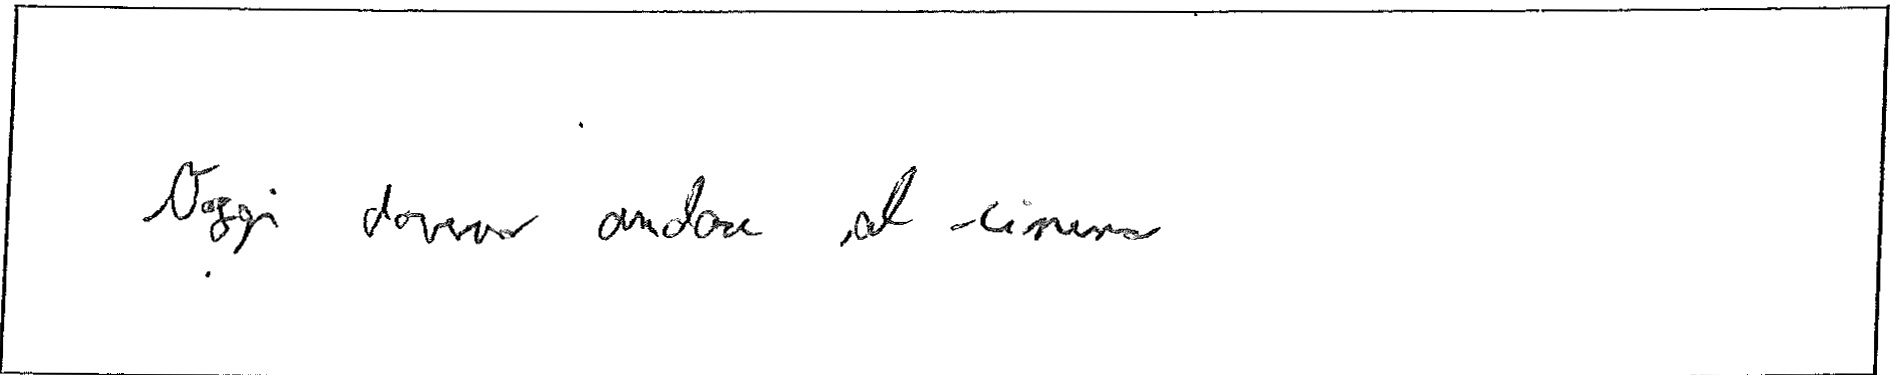 Oggi dovevo andare al cinema